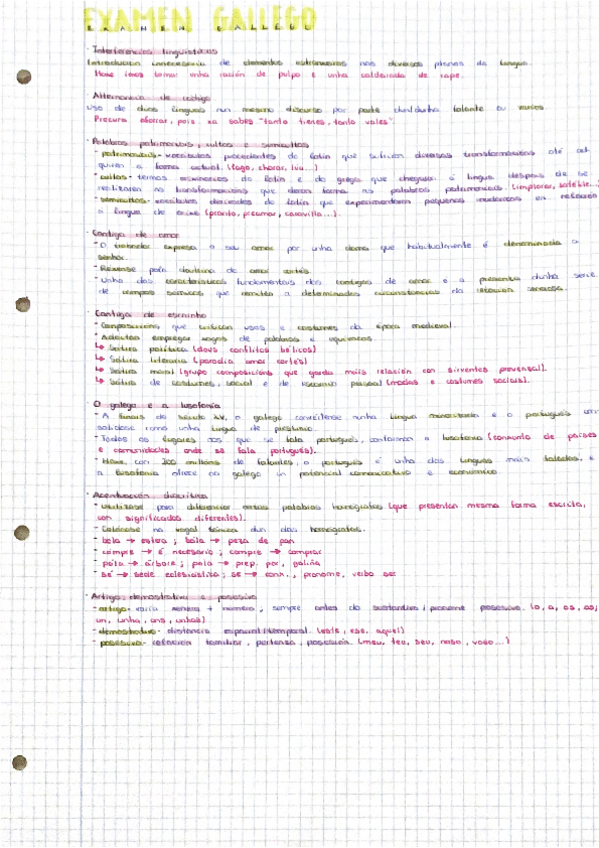 EXAMEN GALLEGO
EXAMEN GALLEGO
Interferencias lingüísticas
Introducción innecesaria de elementos estranxeiros nos diversos planos da lingua.
Hoxe imos tomar unha ración de pulpo e unha caldeirada de rape.
Alternancia de código
Uso de dúas linguas nun mesmo discurso por parte dun/dunha falante ou varios
Procura aforrar, pois xa sabes "tanto tienes, tanto vales".
Palabras patrimoniais, cultas e semicultas
- patrimoniais- vocábulos procedentes do latín que sufriron diversas transformacións ata ad-
quiren a forma actual. (lago, chorar, luu...)
- cultas- termos do latín e do grego que chegaron á lingua despois de se
realizaren as transformacións que deron forma ás palabras patrimoniais. (implorar, satélite...)
- semicultas- vocábulos derivados do latín que experimentaron pequenas modificacións en relación
a lingua de orixe (pranto, preamar, caravilla...).
Cantiga de amor
- O trobador expresa o seu amor por unha dama que habitualmente é denominada a
senhor.
- Rexerse pola doutrina do amor cortés.
- Unha das características fundamentais das cantigas de amor é a presenza dunha serie
de campos sémicos que remiten a determinadas circunstancias da relación amorosa.
Cantiga de escarnio
- Composicións que critican usos e costumes da época medieval.
- Adoitan empregar xogos de palabras e equívocos.
↳ Sátira política (dous conflitos bélicos)
↳ Sátira literaria (parodia amor cortés)
↳ Sátira moral (grupo composicións que garda máis relación con sirventés provenzal).
↳ Sátira de costumes, social e de escarnio persoal (modas e costumes sociais).
O galego e a lusofonía
- A finais do século XV, o galego converteuse nunha lingua minorizada e o portugués con-
solidouse como unha lingua de prestixio.
- Todos os lugares nos que se fala portugués, conforman a lusofonía (conxunto de países
e comunidades onde se fala portugués).
- Hoxe, con 200 millóns de falantes, o portugués é unha das linguas máis faladas, e
a lusofonía ofrece ao galego un potencial comunicativo e económico.
Acentuación diacrítica
- Utilízase para diferenciar certas palabras homógrafas (que presentan mesma forma escrita,
con significados diferentes).
- Colócase na vogal tónica dun das homógrafas.
- bola → esfera ; bóla → peza de pan
- cómpre → é necesario ; compre → comprar
- póla → árbore ; pola → prep. por, galiña
- sé → sede eclesiástica ; se → conx., pronome, verbo ser
Artigo, demostrativo e posesivo
- artigo- varía xénero + número, sempre antes do substantivo/pronome posesivo. (o, a, os, as,
un, unha, uns, unhas)
- demostrativo- distancia espacial/temporal. (este, ese, aquel)
- posesivo- relación familiar, pertenza, posesión. (meu, teu, seu, noso, voso...)